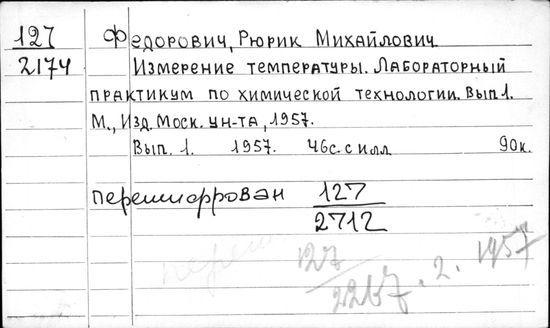 127 Федорович, Рюрик Михайлович
2174 Измерение температуры. Лабораторный
практикум по химической технологии. Вып 1.
М., Изд. Моск. ун-та, 1957.
Вып. 1. 1957. 46с. с илл 90к.
перешифрован 127
2712
127
2267.2.1957